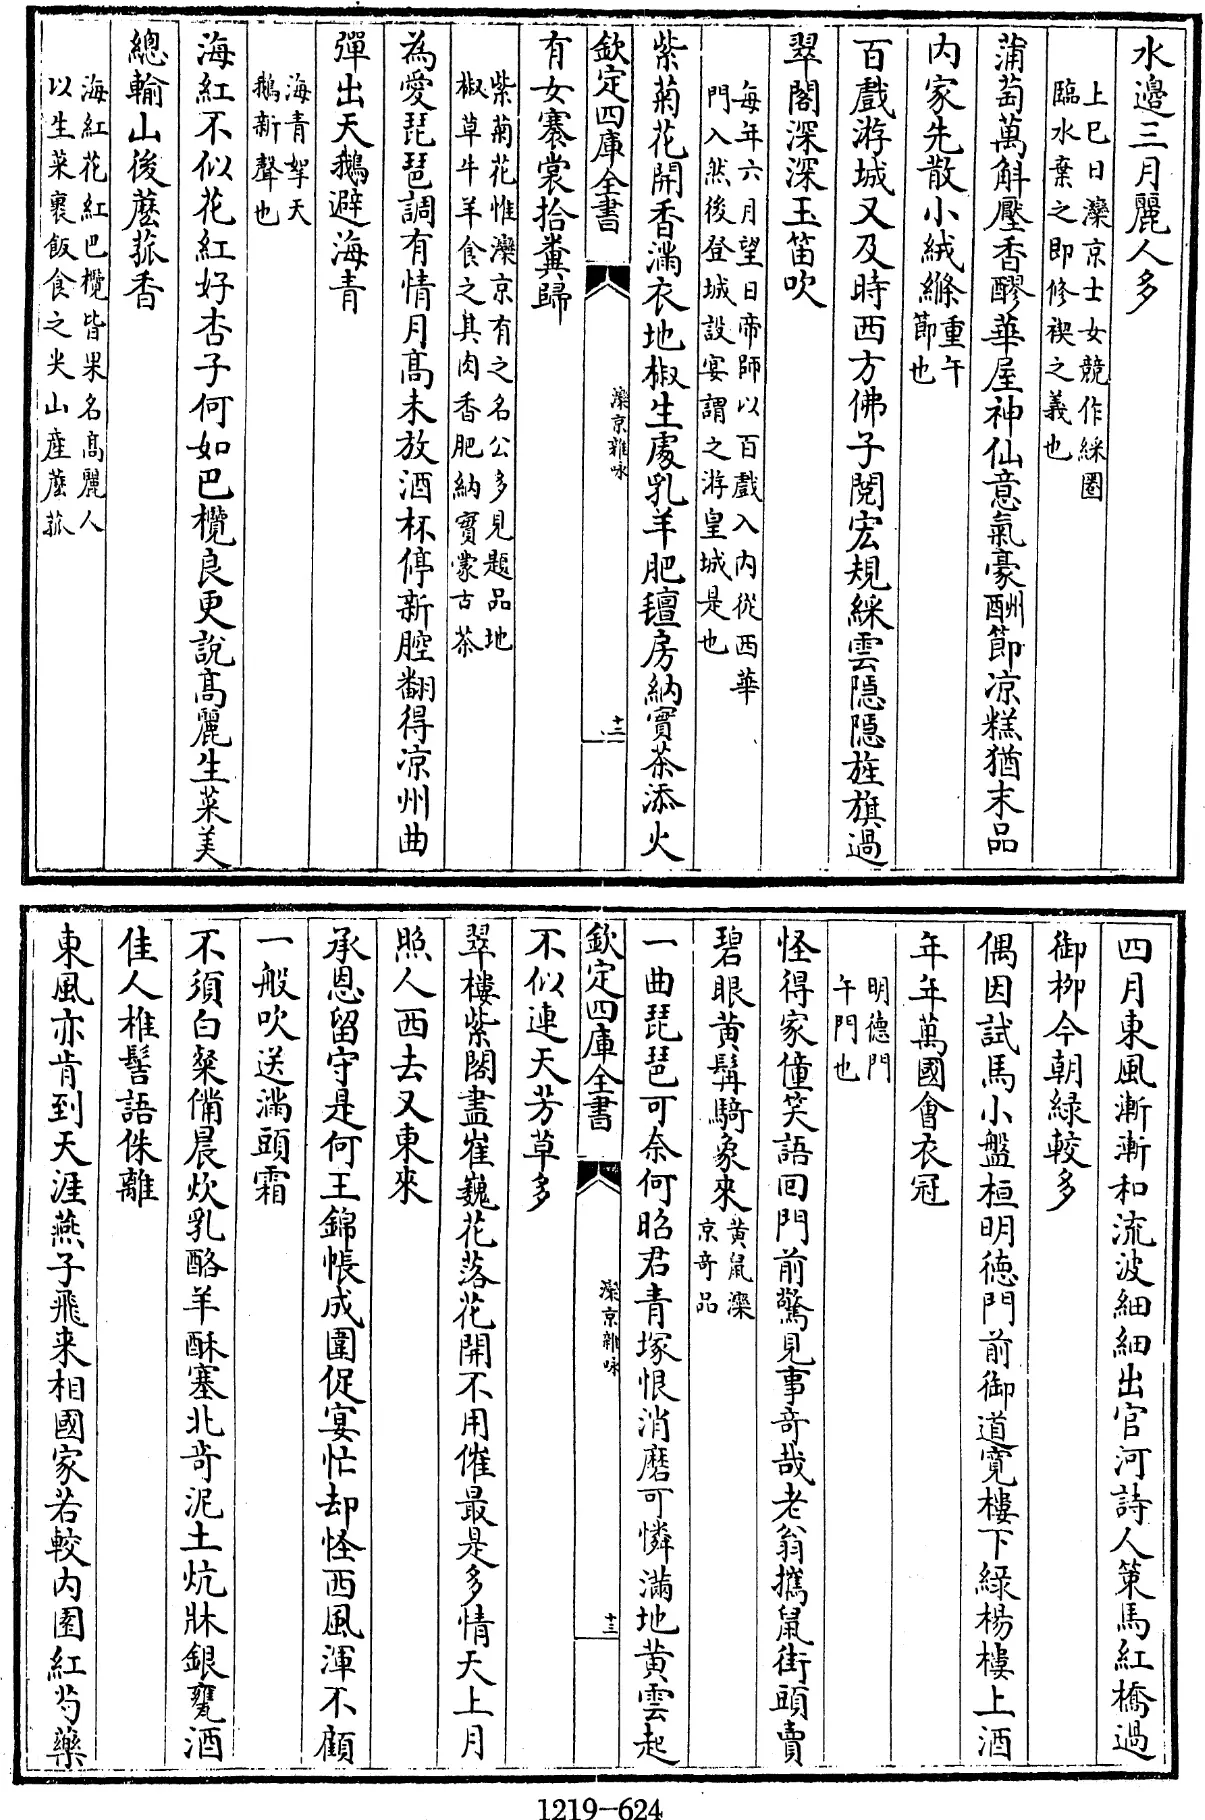 水邊三月麗人多
上巳日灤京士女競作綵圈
臨水棄之即修禊之義也
蒲萄萬斛壓香醪華屋神仙意氣豪酬節凉糕猶末品
内家先散小絨縧重午
節也
百戲游城又及時西方佛子閱宏規綵雲隱隱旌旗過
翠閣深深玉笛吹
每年六月望日帝師以百戲入内從西華
門入然後登城設宴謂之游皇城是也
紫菊花開香滿衣地椒生處乳羊肥氊房納寳茶添火
欽定四庫全書
灤京雜咏
十三
有女褰裳拾糞歸
紫菊花惟灤京有之名公多見題品地
椒草牛羊食之其肉香肥納寳蒙古茶
為愛琵琶調有情月高未放酒杯停新腔翻得凉州曲
彈出天鵝避海青
海青拏天
鵝新聲也
海紅不似花紅好杏子何如巴欖良更說高麗生菜美
總輸山後䕲菰香
海紅花紅巴欖皆果名高麗人
以生菜裹飯食之尖山產䕲菰
四月東風漸漸和流波細細出官河詩人策馬紅橋過
御栁今朝緑較多
偶因試馬小盤桓明德門前御道寛樓下緑楊樓上酒
年年萬國會衣冠
明德門
午門也
怪得家僮笑語回門前驚見事奇哉老翁携鼠街頭賣
碧眼黄髯騎象來黄鼠灤
京奇品
一曲琵琶可奈何昭君青塚恨消磨可憐滿地黄雲起
欽定四庫全書
灤京雜咏
十三
不似連天芳草多
翠樓紫閣盡崔巍花落花開不用催最是多情天上月
照人西去又東來
承恩留守是何王錦帳成圍促宴忙却怪西風渾不顧
一般吹送滿頭霜
不須白粲備晨炊乳酪羊酥塞北奇泥土炕牀銀甕酒
佳人椎髻語侏離
東風亦肯到天涯燕子飛來相國家若較内園紅芍藥
1219-624